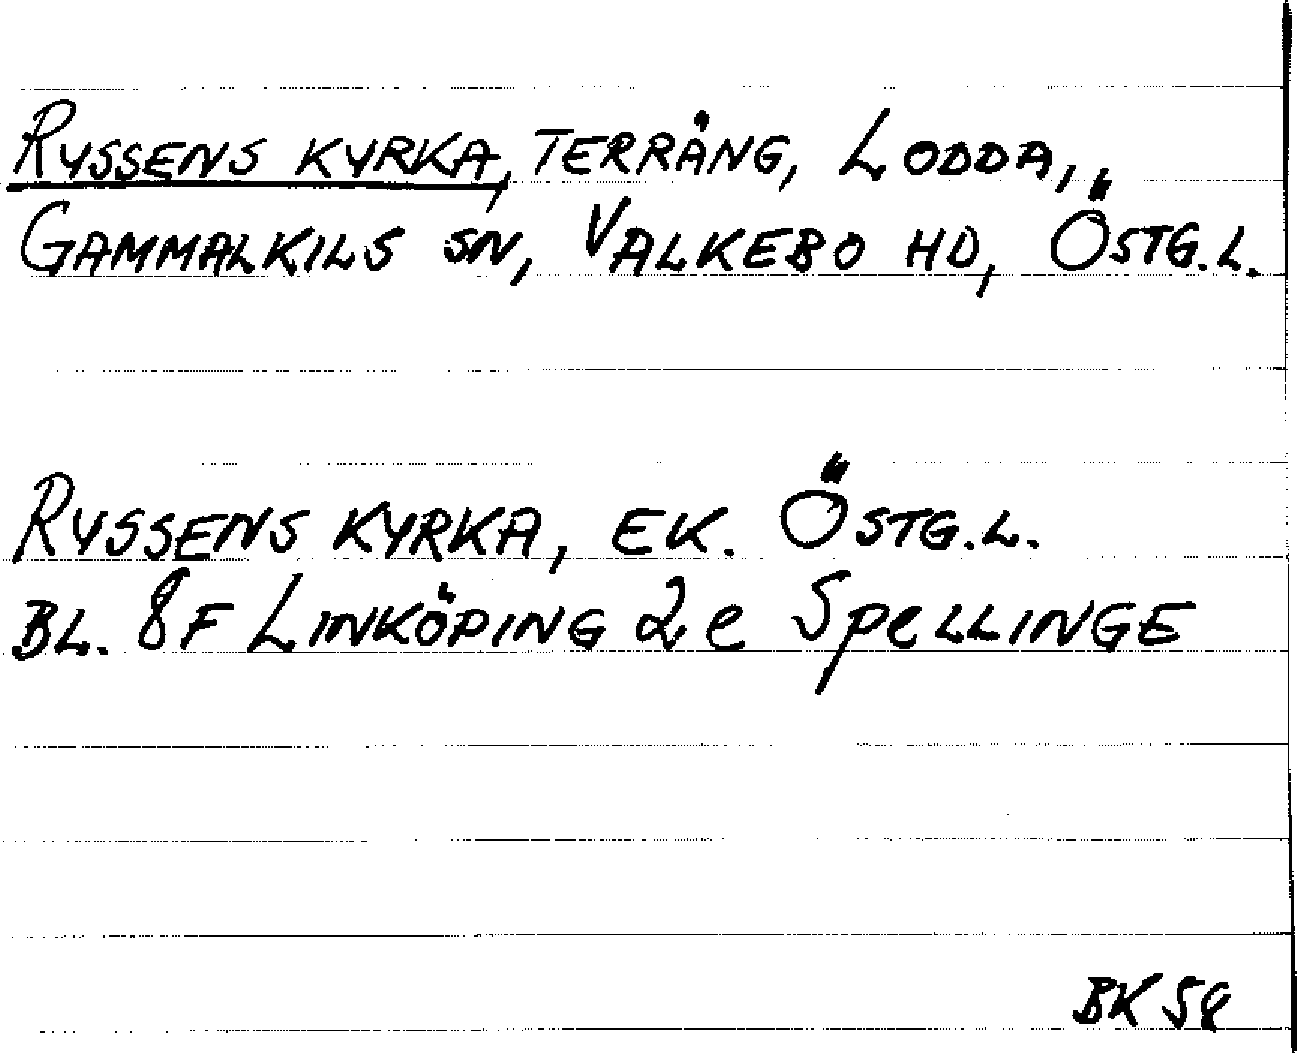 RYSSENS KYRKA, TERRÄNG, LODDA,
GAMMALKILS SN, VALKEBO HD, ÖSTG.L.
RYSSENS KYRKA, EK. ÖSTG.L.
BL. 8F LINKÖPING 2e SPELLINGE
BK 58